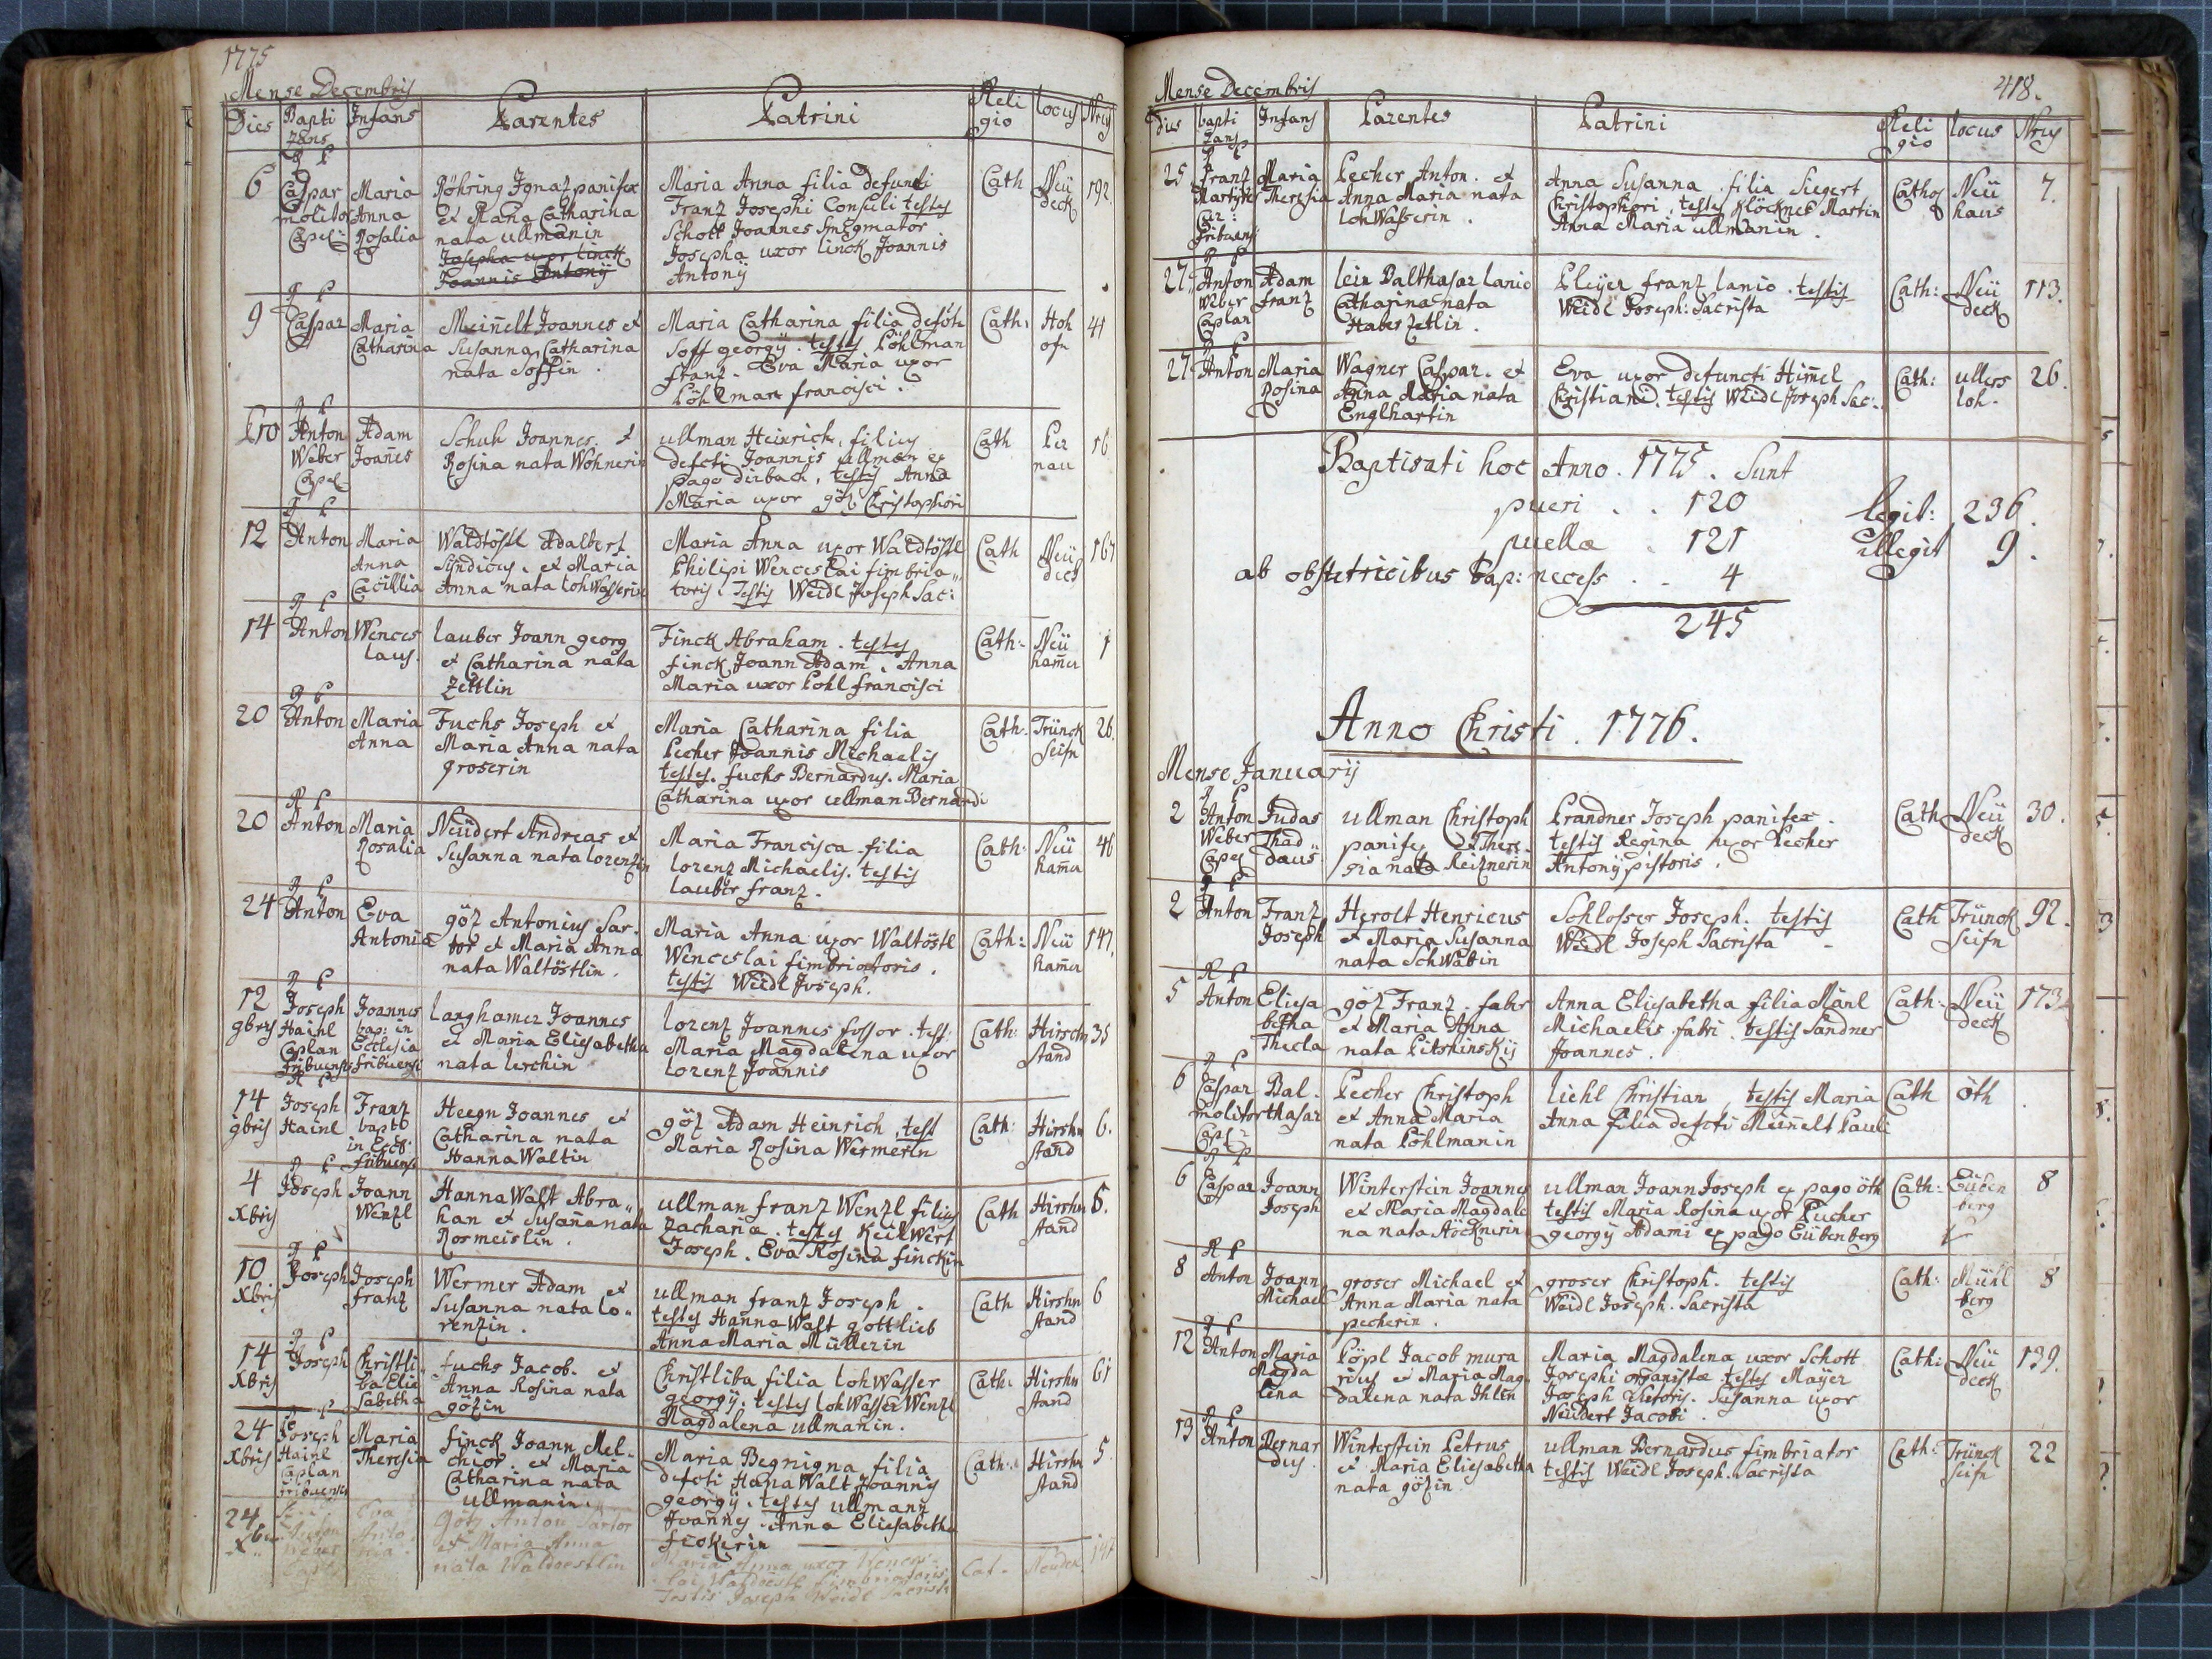 1775
Mense Decembris
Dies Bapti Infans Parentes Patrini Reli locus Nrus
zans gio
6 P P Caspar Maria Röhring Ignaz panifex Maria Anna filia defuncti Cath Neü 192.
molitor Anna et Maria Catharina Franz Josephi Consuli testes deck
Capel: Rosalia nata ullmanin Schott Joannes Smegmator
Josepha uxor linck Josepha uxor linck Joannis
Joannis Antonÿ Antonÿ
9 P P Caspar Maria Meinelt Joannes et Maria Catharina filia defti Cath: Hoh 41
Catharina Susanna Catharina Soff georgÿ. testes Pöhlman ofn
nata Soffin. franz. Eva Maria uxor
Pöhlman francisci.
10 P P Anton Adam Schuh Joannes. et ullman Heinrich, filius Cath Per 16
Weber Joanes Rosina nata Wohnerin defcti Joannis ullman ex nau
Capel pago dirbach, testis Anna
Maria uxor göz Christophori
12 P P Anton Maria Waldtöstl Adalbert Maria Anna uxor Waldtöstl Cath Neü 167
Anna Sindicus, et Maria Philipi Wenceslai fimbria„ deck
Cacillia Anna nata lohWasserin toris, Testis Weidl Joseph Sac:
14 P P Anton Wences lauber Joann georg Finck Abraham. testes Cath: Neü 1
laus. et Catharina nata finck Joann Adam. Anna hamer
Zettlin Maria uxor Pohl francisci
20 P P Anton Maria Fuchs Joseph et Maria Catharina filia Cath: Trünck 26.
Anna Maria Anna nata Pecher Joannis Michaelis seifn
groserin testes. fuchs Bernardus. Maria
Catharina uxor ullman Bernardi
20 P P Anton Maria Neüdert Andreas et Maria Francisca filia Cath: Neü 46
Rosalia Susanna nata lorenzin lorenz Michaelis. testis hamer
lauber franz.
24 P P Anton Eva göz Antonius Sar- Maria Anna uxor Waltöstl Cath: Neü 147.
Antonia tor et Maria Anna Wenceslai fimbriatoris. hamer
nata Waltöstlin. testis Weidl Joseph.
12 P P Joseph Joannes langhamer Joannes lorenz Joannes fossor. test: Cath: Hirschn 35
9bris Hainl bap: in et Maria Eliesabetha Maria Magdalena uxor stand
Caplan Ecclesia nata lerchin lorenz Joannis
fribuensis fribuensi
14 P P Joseph Franz Heegn Joannes et göz Adam Heinrich, test Cath: Hirshn 6.
9bris Hainl bapt: Catharina nata Maria Rosina Wermerin stand
in Eccl. HannaWaltin
fribuensi
4 P P Joseph Joann HannaWalt Abra„ ullman franz Wenzl filius Cath Hirshn 6.
Xbris Wenzl han et Susana nata Zachariæ. testes Keilwert stand
Rosmeislin. Joseph. Eva Rosina finckin
10 P P Joseph Joseph Wermer Adam et ullman franz Joseph. Cath Hirshn 6
Xbris franz Susanna nata lo„ testes HannaWalt gottlieb stand
renzin. Anna Maria Müllerin
14 P P Joseph Christli„ fuchs Jacob. et Christliba filia lohWasser Cath: Hirshn 61
Xbris ba Elie Anna Rosina nata georgÿ. testes lohWasser Wenzl stand
sabetha gözin Magdalena ullmanin.
24 P P Joseph Maria finck Joann Mel- Maria Begnigna filia Cath: Hirshn 5
Xbris Hainl Theresia chior. et Maria defcti HanaWalt Joannis stand
Caplan Catharina nata georgÿ. testes ullmann
fribuensis ullmanin. Joannes. Anna Eliesabetha
fickerin
24 Eva Götz Anton Sartor Maria Anna uxor Wences- Cat. Neudek 147
Xber Anton Anto et Maria Anna lai Waldoestl fimbriatoris
Weber nia. nata Waldoestlin testis Joseph Weidl Sacrista
Mense Decembris 418.
dies bapti Infans Parentes Patrini Reli locus Nrus
zans gio
25 P P Franz Maria Pecher Anton. et Anna Susanna filia Siegert Cathol Neü 7.
Martÿk Theresia Anna Maria nata Christophori. testes Klöckner Martin haus
Cap: lohWasserin. Anna Maria ullmanin.
fribuens
27 P P Anton Adam leix Balthasar lanio Pleÿer franz lanio. testis Cath: Neü 113.
Wber franz Catharina nata Weidl Joseph: Sacrista deck
Caplan Haberzetlin.
27 P P Anton Maria Wagner Caspar. et Eva uxor defuncti Himel Cath: ullers 26.
Rosina Anna Maria nata Christiani. testis Weidl Joseph Sac:. loh.
Englhartin
Baptisati hoc Anno. 1775. Sunt
pueri . . 120 legit: 236.
puellæ . 121 illegit 9.
ab obstetricibus bap: necess . . 4
245
Anno Christi. 1776.
Mense Januarij
2 P P Anton Judas ullman Christoph Prandner Joseph panifex. Cath Neü 30.
Weber Thad„ panifex et There- testis Regina uxor Pecher deck
Capel daus sia nata Reiznerin Antonÿ pistoris.
2 P P Anton Franz Herolt Henricus Schlosser Joseph. testis Cath Trünck 92.
Joseph et Maria Susanna Weidl Joseph Sacrista seifn
nata Schwabin
5 P P Anton Eliesa göz Franz. fabr Anna Eliesabetha filia Mänl Cath: Neü 173
betha et Maria Anna Michaelis fabri. testis Sandner deck
Thecla nata Pitshinskÿ Joannes.
6 P P Caspar Bal- Pecher Christoph liehl Christian, testis Maria Cath öth
molitor thasar et Anna Maria Anna filia defcti Meinelt Pauli
Capl: nata Pöhlmanin
6 P P Caspar Joann Winterstein Joannes ullman Joann Joseph ex pago öth Cath: Eüben 8
Joseph et Maria Magdale testis Maria Rosina uxor Pucher berg
na nata Stöcknerin georgÿ Adami ex pago Eübenberg
8 P P Anton Joann groser Michael et groser Christoph. testis Cath: Mühl 8
Michael Anna Maria nata Weidl Joseph. Sacrista berg
pecherin.
12 P P Anton Maria Pöpl Jacob mura Maria Magdalena uxor Schott Cath: Neü 139.
Magda rius et Maria Mag- Josephi organistæ testes Maÿer deck
lena dalena nata Ihlin Joseph Susanna uxor
Neüdert Jacobi.
13 P P Anton Bernar Winterstein Petrus ullman Bernardus fimbriator Cath: Trünck 22
dus. et Maria Eliesabetha testis Weidl Joseph. Sacrista seifn
nata gözin